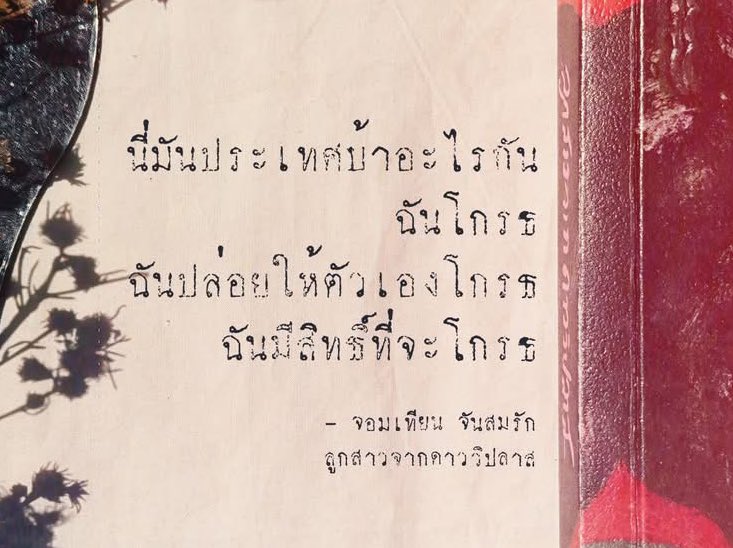 นี่มันประเทศบ้าอะไรกัน
ฉันโกรธ
ฉันปล่อยให้ตัวเองโกรธ
ฉันมีสิทธิ์ที่จะโกรธ
– จอมเทียน จันสมรัก
ลูกสาวจากดาววิปลาส